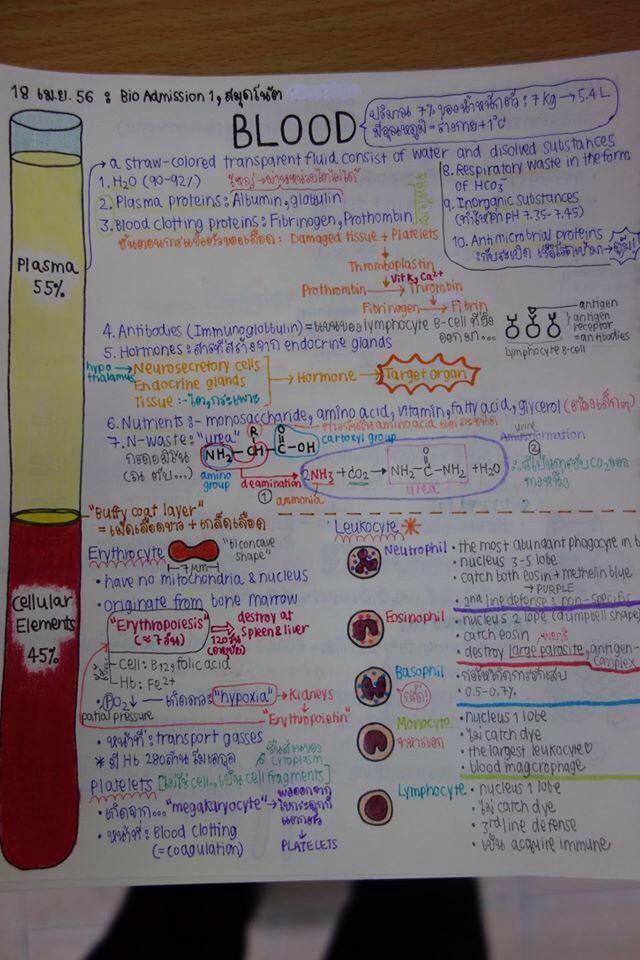 18 เม.ย. 56 : Bio Admission 1, สมุดโน้ต
BLOOD
ปริมาณ 7% ของน้ำหนักตัว : 7 kg → 5.4 L
มีอุณหภูมิ = ร่างกาย + 1°c
→ a straw-colored transparent fluid consist of water and disolved substances
1. H2O (90-92%)
2. Plasma proteins : Albumin, globulin
3. Blood clotting proteins : Fibrinogen, Prothombin
8. Respiratory waste in the form
of HCO3-
9. Inorganic substances
(ทำให้ค่า pH 7.35-7.45)
10. Antimicrobrial proteins
Plasma
55%
Damaged tissue + Platelets
Thromboplastin
Vit K, Ca2+
Prothombin → Thrombin
Fibrinogen → Fibrin
4. Antibodies (Immunoglobbulin) = lymphocyte B-cell
5. Hormones : สารที่สร้างจาก endocrine glands
antigen
antigen
receptor
= antibodies
lymphocyte B-cell
hypo
thalamus
Neurosecretory cells
Endocrine glands
Tissue :-
→ Hormone → Target organ
6. Nutrients :- monosaccharide, amino acid, vitamin, fatty acid, glycerol
7. N-waste : "urea"
R O
NH2 - CH - C - OH
carboxyl group
amino
group
deamination
①
ammonia
2NH3 + CO2 → NH2 - C - NH2 + H2O
O
urea
formation
②
"Buffy coat layer"
= เม็ดเลือดขาว + เกล็ดเลือด
Cellular
Elements
45%
Erythrocyte
"biconcave
shape"
7 μm
• have no mitochondria & nucleus
• originate from bone marrow
"Erythropoiesis"
(≈ 7 วัน)
120 วัน
destroy at
spleen & liver
Cell : B12, folic acid
Hb : Fe2+
• PO2↓ → เกิดภาวะ "hypoxia" → Kidneys
partial pressure
"Erythropoietin"
• หน้าที่ : transport gasses
* มี Hb 280 ล้านโมเลกุล
ชิ้นส่วนของ
cytoplasm
Platelets [ไม่ใช่ cell, เป็น cell fragments]
• เกิดจาก... "megakaryocyte"
• หน้าที่ : Blood clotting
(= coagulation)
PLATELETS
Leukocyte
Neutrophil
• the most abundant phagocyte in b
• nucleus 3-5 lobe
• catch both eosin + methelin blue
→ PURPLE
• 2nd line defense : non-specific
Eosinophil
• nucleus 2 lope (dumpbell shape)
• catch eosin
• destroy large parasite, antigen-
complex
Basophil
• ก่อให้เกิดการอักเสบ
• 0.5-0.7%
Monocyte
• nucleus 1 lobe
• ไม่ catch dye
• the largest leukocyte♡
• blood magcrophage
Lymphocyte
• nucleus 1 lobe
• ไม่ catch dye
• 3rd line defense
• เป็น acquire immune